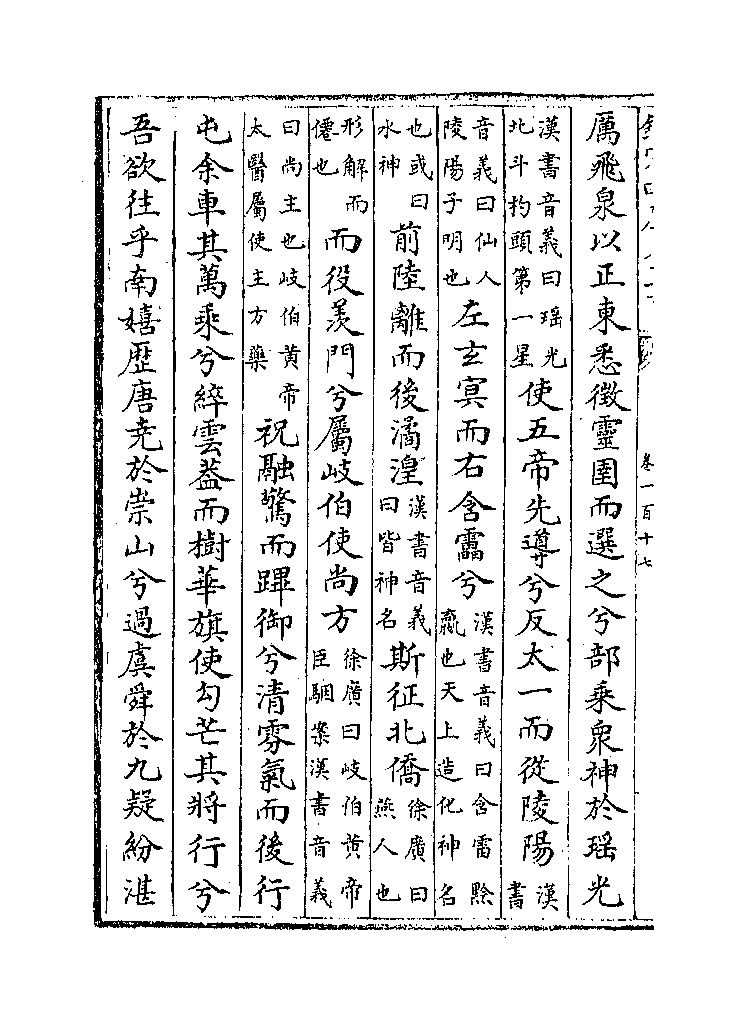 卷一百十七
厲飛泉以正東悉徵靈圉而選之兮部乘衆神於瑶光
漢書音義曰瑶光北斗杓頭第一星使五帝先導兮反太一而從陵陽漢書
音義曰仙人陵陽子明也左玄冥而右含靁兮漢書音義曰含雷黔羸也天上造化神名
也或曰水神前陸離而後潏湟漢書音義曰皆神名斯征北僑徐廣曰燕人也
形解而僊也而役羨門兮屬岐伯使尚方徐廣曰岐伯黄帝臣駰案漢書音義
曰尚主也岐伯黄帝太醫屬使主方藥祝融驚而蹕御兮清雰氣而後行
屯余車其萬乘兮綷雲葢而樹華旗使勾芒其將行兮
吾欲往乎南嬉歴唐堯於崇山兮過虞舜於九疑紛湛